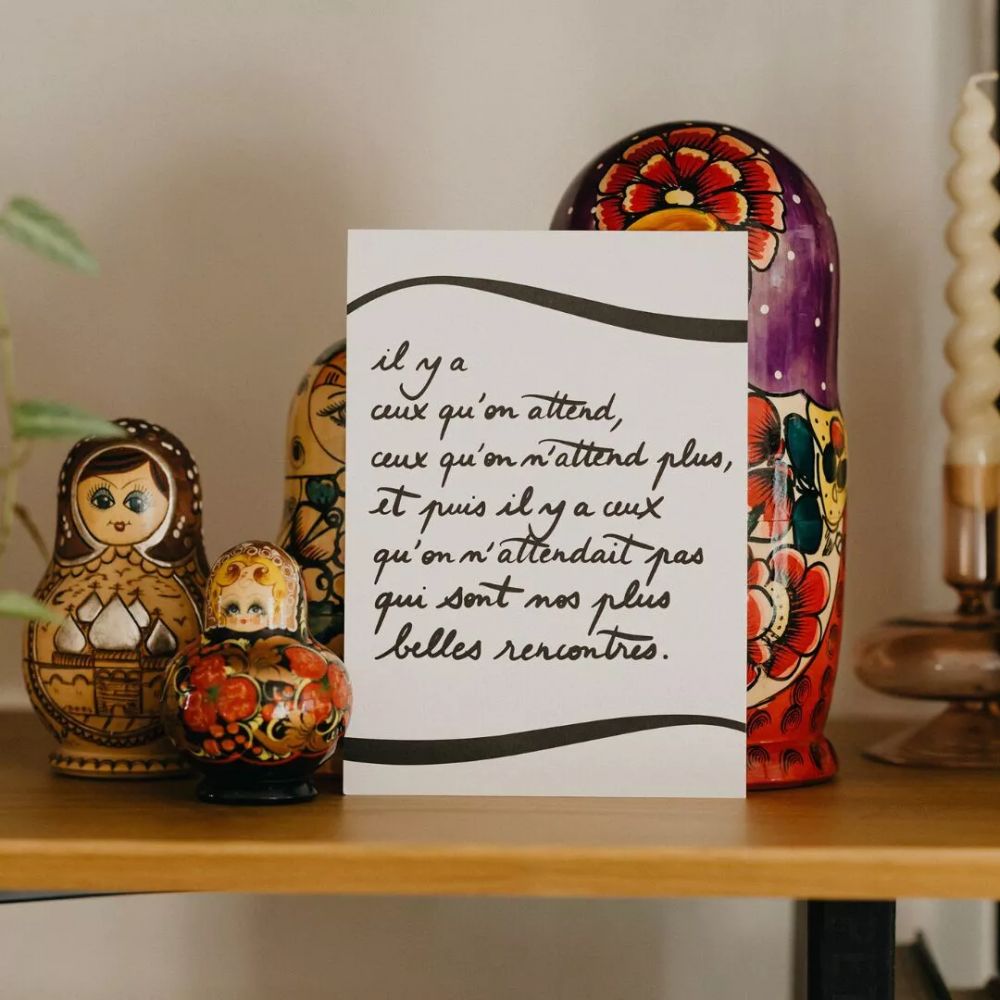 il y a
ceux qu'on attend,
ceux qu'on n'attend plus,
et puis il y a ceux
qu'on n'attendait pas
qui sont nos plus
belles rencontres.